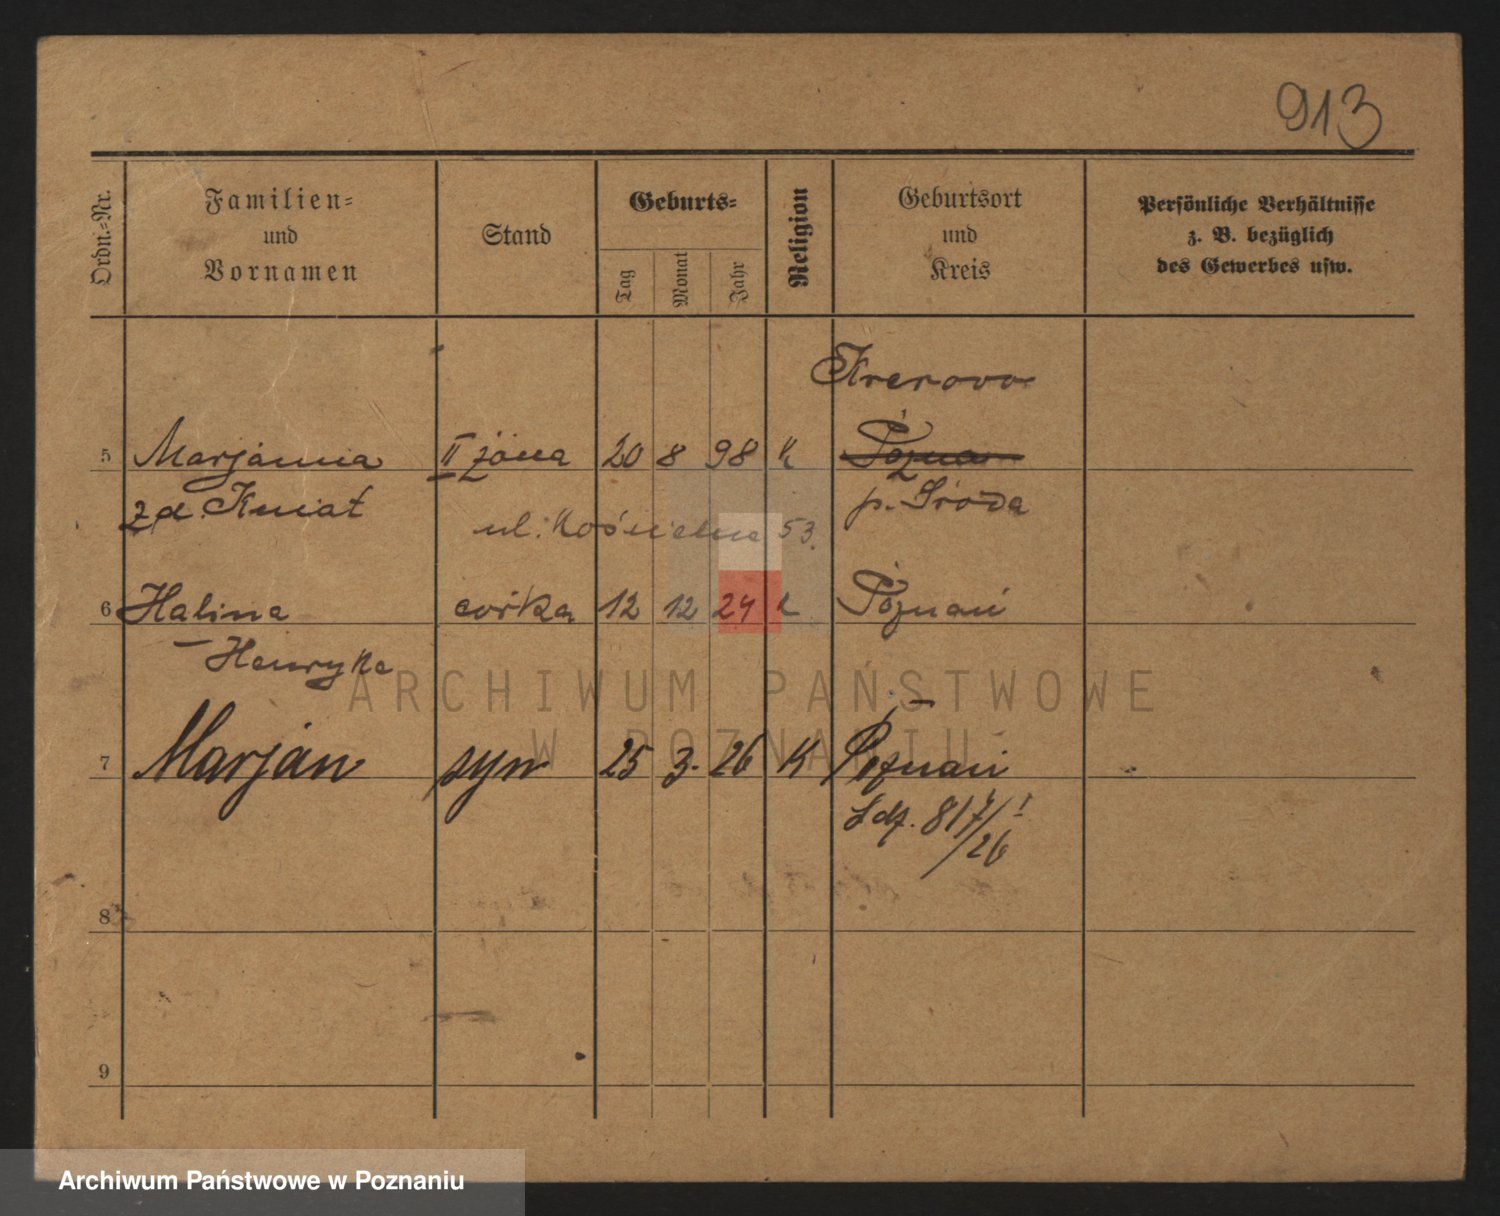 913
Ordn.-Nr.
Familien-
und
Vornamen
Stand
Geburts-
Tag
Monat
Jahr
Religion
Geburtsort
und
Kreis
Persönliche Verhältnisse
z. B. bezüglich
des Gewerbes usw.
Krerowo
5 Marjanna II żona 20 8 98 K
zd. Kwiat p. Środa
ul. Kościelna 53.
6 Halina córka 12 12 24 K Poznań
Henryka
ARCHIWUM PAŃSTWOWE
W POZNANIU
7 Marjan syn 25 3. 26 K Poznań
Ldz. 817/I
/26
8
9
Archiwum Państwowe w Poznaniu